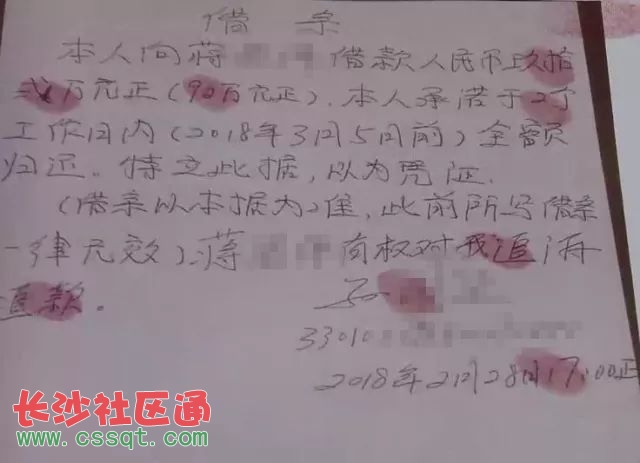 借条
本人向蒋 借款人民币玖拾
万元正(90万元正).本人承诺于2个
工作日内(2018年3月5日前)全额
归还。特立此据,以为凭证.
(借条以本据为准,此前所写借条
一律无效).蒋 有权对我追诉
追款。
33010
2018年2月28日17:00正
长沙社区通
www.cssqt.com